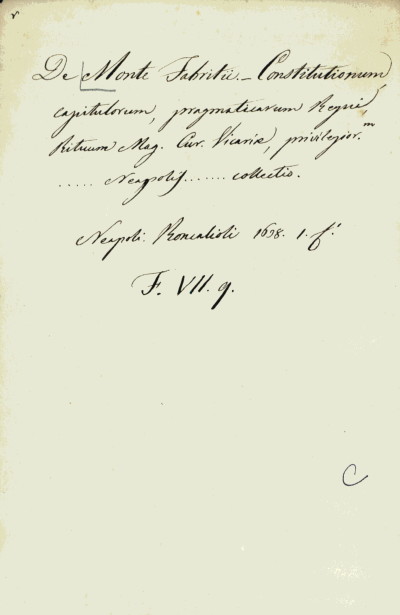 De Monte Fabritii. - Constitutionum,
capitulorum, pragmaticarum Regni,
Rituum Mag. Cur. Vicariæ, privilegior.m
..... Neapolis ....... collectio.
Neapoli. Roncalioli 1628. 1. f.º
F. VII. 9.
C